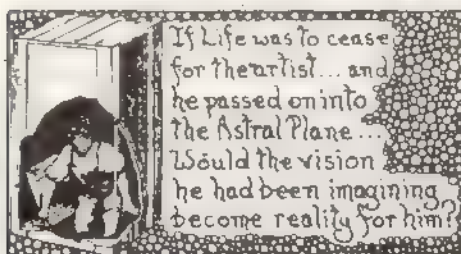 If Life was to cease
for the artist... and
he passed on into
the Astral Plane...
Would the vision
he had been imagining
become reality for him?